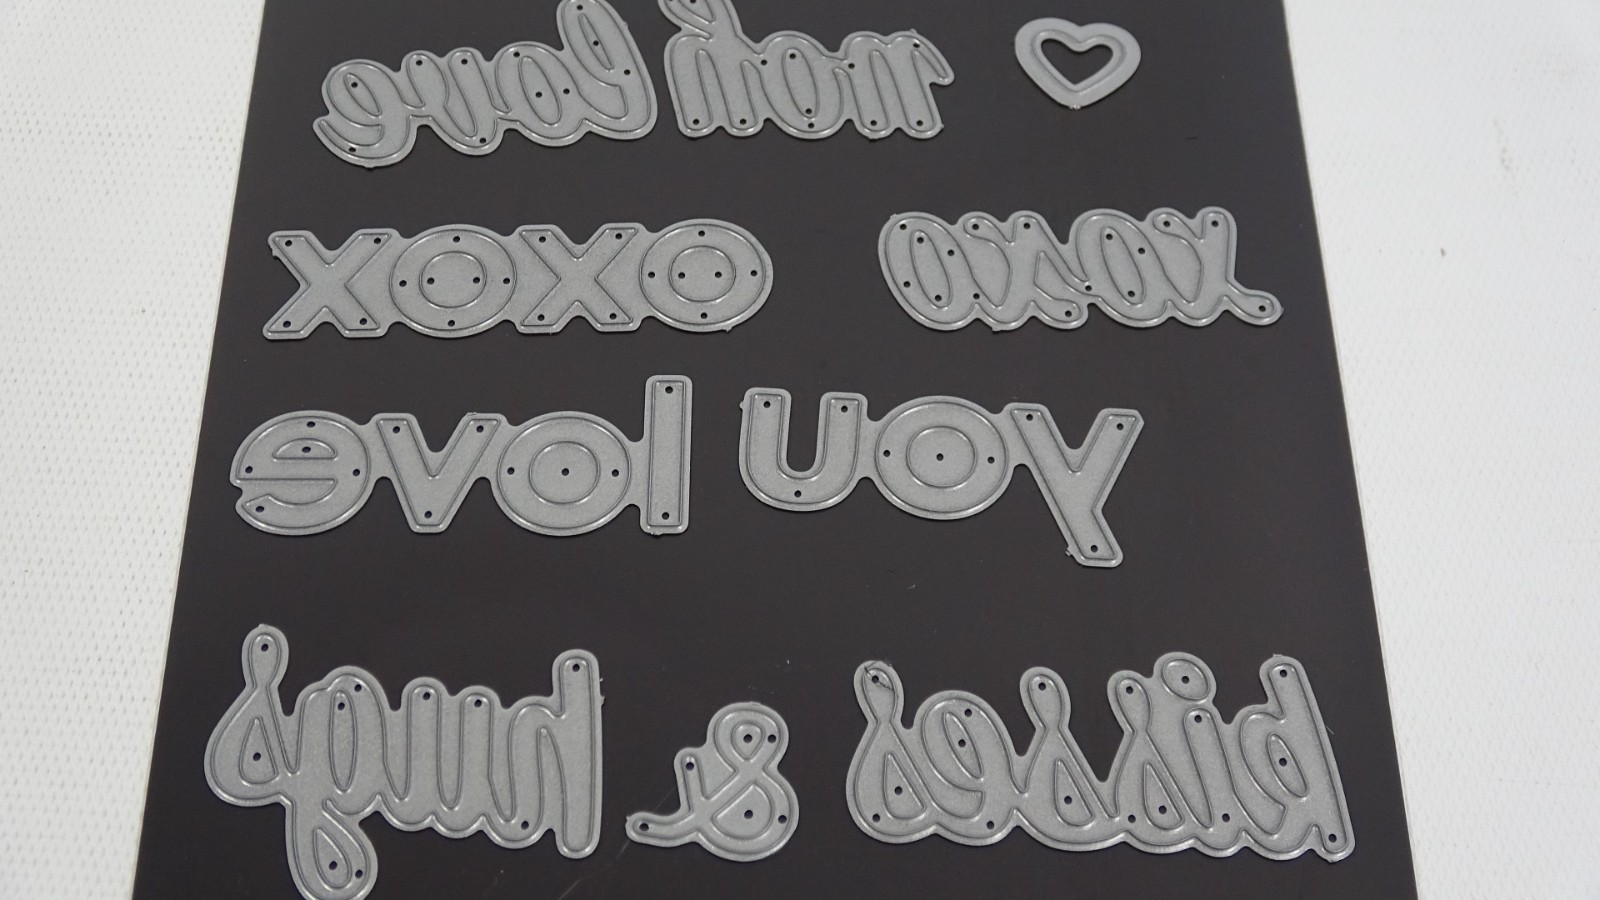 love you
xoxo xoxo
love you
hugs & kisses